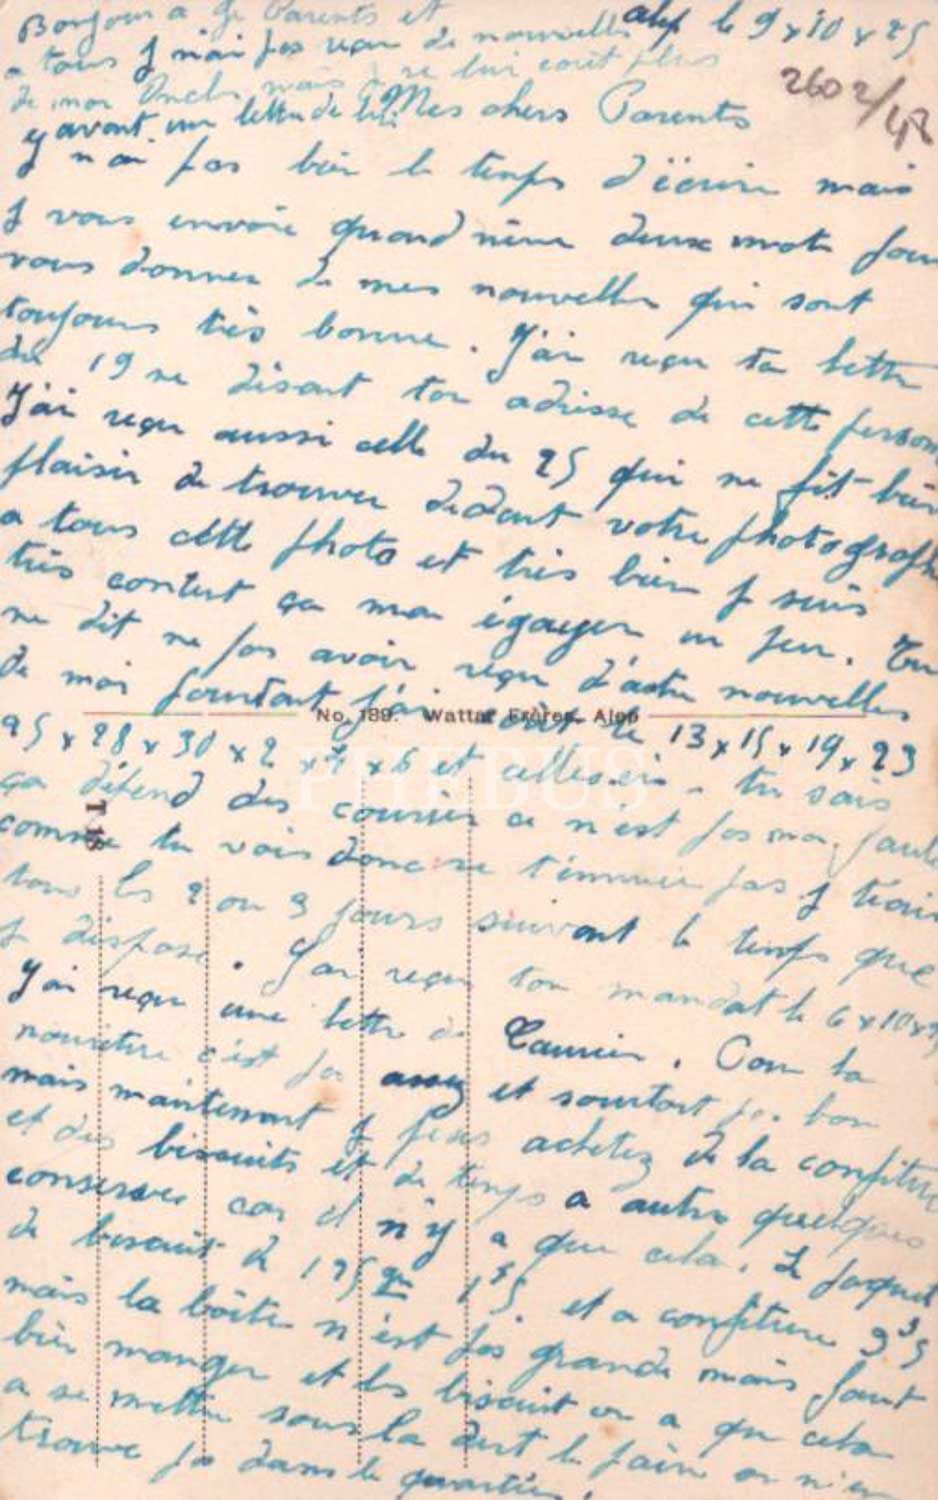 Bonjour a Gr Parents et
a tous J n'ai pas reçu de nouvelles
de mon Oncle, mais j ne lui ecrit plus
y avant une lettre de lui
alep le 9 x 10 x 25
2602/47
Mes chers Parents
J n ai pas bien le temps d'ècrire mais
J vous envoie quand mème deux mots pour
vous donner de mes nouvelles qui sont
toujours très bonne. J'ai reçu ta lettre
du 19 me disant ton adresse de cette person
J'ai reçu aussi celle du 25 qui me fit bien
plaisir de trouver dedant votre photographi
a tous cette photo et très bien J suis
très contut ça ma égayer un peu. Tu
me dit ne pas avoir reçu d'autre nouvelles
de moi pourtant j'ai ècrit le 13 x 15 x 19 x 23
No. 189. Wattar Frères, Alep
25 x 28 x 30 x 2 x 4 x 6 et celles ci - tu sais
ça dépend des courrier ce n'est pas ma faute
PHEBUS
comme tu vois donc ne t'ennuie pas J t'écri
tous les 2 ou 3 jours suivant le temps que
J dispose. J'ai reçu ton mandat le 6 x 10 x 25
J'ai reçu une lettre de . Com la
nouriture c'est pas assez et sourtout pas bon
mais maintenant J peus achetez de la confiture
et des biscuits et de temps a autre quelques
conserves car il n'y a que cela. L paquet
de biscuit de 125 gr 1f 5. et a confiture 3f 5
mais la boîte n'est pas grande mais faut
bien manger et les biscuit on a que cela
a se mettre sous la dent le pain on n'en
trouve pas dans le quartier.